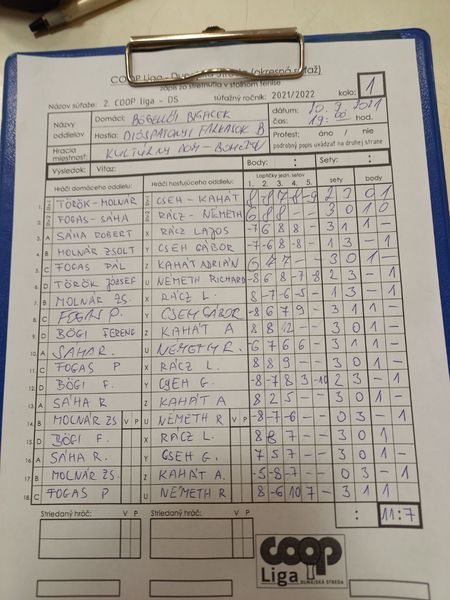 COOP Liga - Dunajská Streda (okresná súťaž)
zápis zo stretnutia v stolnom tenise
Názov súťaže: 2. COOP liga - DS súťažný ročník: 2021/2022 kolo: 1
Názvy oddielov Domáci: dátum: 2021
Hostia: FARKASOK B čas: 19:00 hod.
Hracia miestnosť: KULTÚRNY DOM - Protest: áno / nie
podrobný popis uviesť na druhej strane
Výsledok: Víťaz: Body: : Sety: :
Hráči domáceho oddielu: Hráči hosťujúceho oddielu: Loptičky jedn. setov sety body
1. 2. 3. 4. 5.
1. TÖRÖK - MOLNÁR CSEH - KAHÁT 2 3 0 1
2. FOGAS - SÁHA RÁCZ - NÉMETH 6 8 8 - - 3 0 1 0
3. A SÁHA ROBERT X RÁCZ LAJOS -7 6 8 8 - 3 1 1 -
4. B MOLNÁR ZSOLT Y CSEH GÁBOR -7 -6 8 -8 - 1 3 - 1
5. C FOGAS PÁL Z KAHÁT ADRIÁN 6 4 7 - - 3 0 1 -
6. D TÖRÖK JÓZSEF U NÉMETH RICHARD -8 6 8 -7 -8 2 3 - 1
7. B MOLNÁR ZS. X RÁCZ L. 8 -7 -6 -5 - 1 3 - 1
8. C FOGAS P. Y CSEH GÁBOR -8 6 7 9 - 3 1 1 -
9. D BÖGI FERENC Z KAHÁT A 8 8 12 - - 3 0 1 -
10. A SÁHA R. U NÉMETH R. -6 7 6 6 - 3 1 1 -
11. C FOGAS P X RÁCZ L. 8 8 9 - - 3 0 1 -
12. D BÖGI F. Y CSEH G. -8 -7 8 3 -10 2 3 - 1
13. A SÁHA R Z KAHÁT A 8 2 5 - - 3 0 1 -
14. B MOLNÁR ZS V P U NÉMETH R V P -8 -7 -6 - - 0 3 - 1
15. D BÖGI F. X RÁCZ L. 8 8 7 - - 3 0 1
16. A SÁHA R. Y CSEH G. 7 5 7 - - 3 0 1
17. B MOLNÁR ZS. Z KAHÁT A. -5 -8 -7 - - 0 3 - 1
18. C FOGAS P U NÉMETH R 8 -6 10 7 - 3 1 1
: 11:7
Striedaný hráč: V P Striedaný hráč: V P
coop
Liga DUNAJSKÁ STREDA